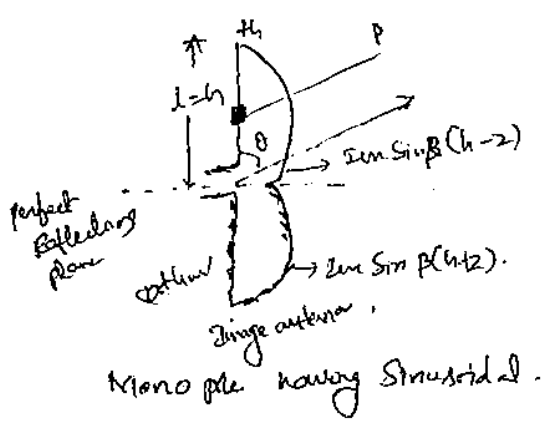 th
P
l=h
θ
Im Sin β (h-z)
perfect
Reflecting
plane
Im Sin β(h+z).
Image antenna.
Monopole having Sinusoidal.